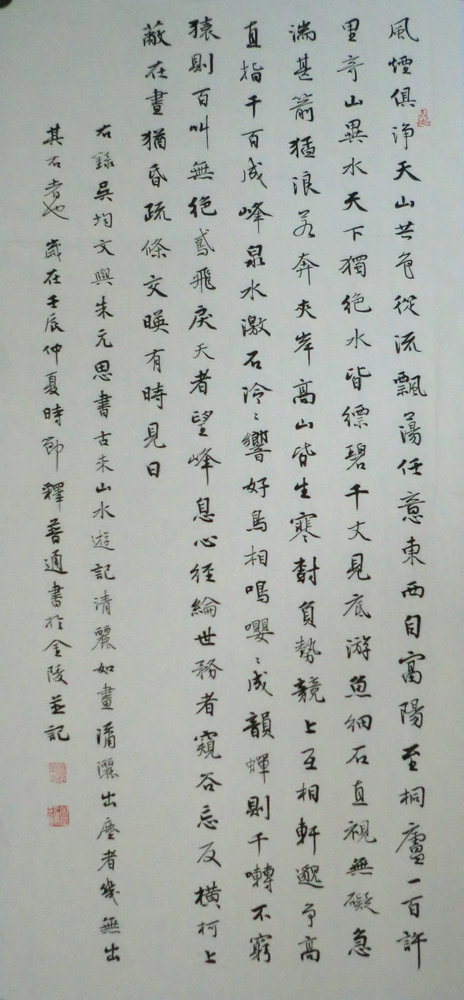 風煙俱淨天山共色從流飄蕩任意東西自富陽至桐廬一百許
里奇山異水天下獨絕水皆縹碧千丈見底游魚細石直視無礙急
湍甚箭猛浪若奔夾岸高山皆生寒樹負勢競上互相軒邈爭高
直指千百成峰泉水激石泠〻響好鳥相鳴嚶〻成韻蟬則千囀不窮
猿則百叫無絕鳶飛戾天者望峰息心經綸世務者窺谷忘反橫柯上
蔽在晝猶昏疏條交暎有時見日
右錄吳均文與朱元思書古未山水遊記清麗如畫瀟灑出塵者幾無出
其右者也歲在壬辰仲夏時節釋普通書於金陵並記